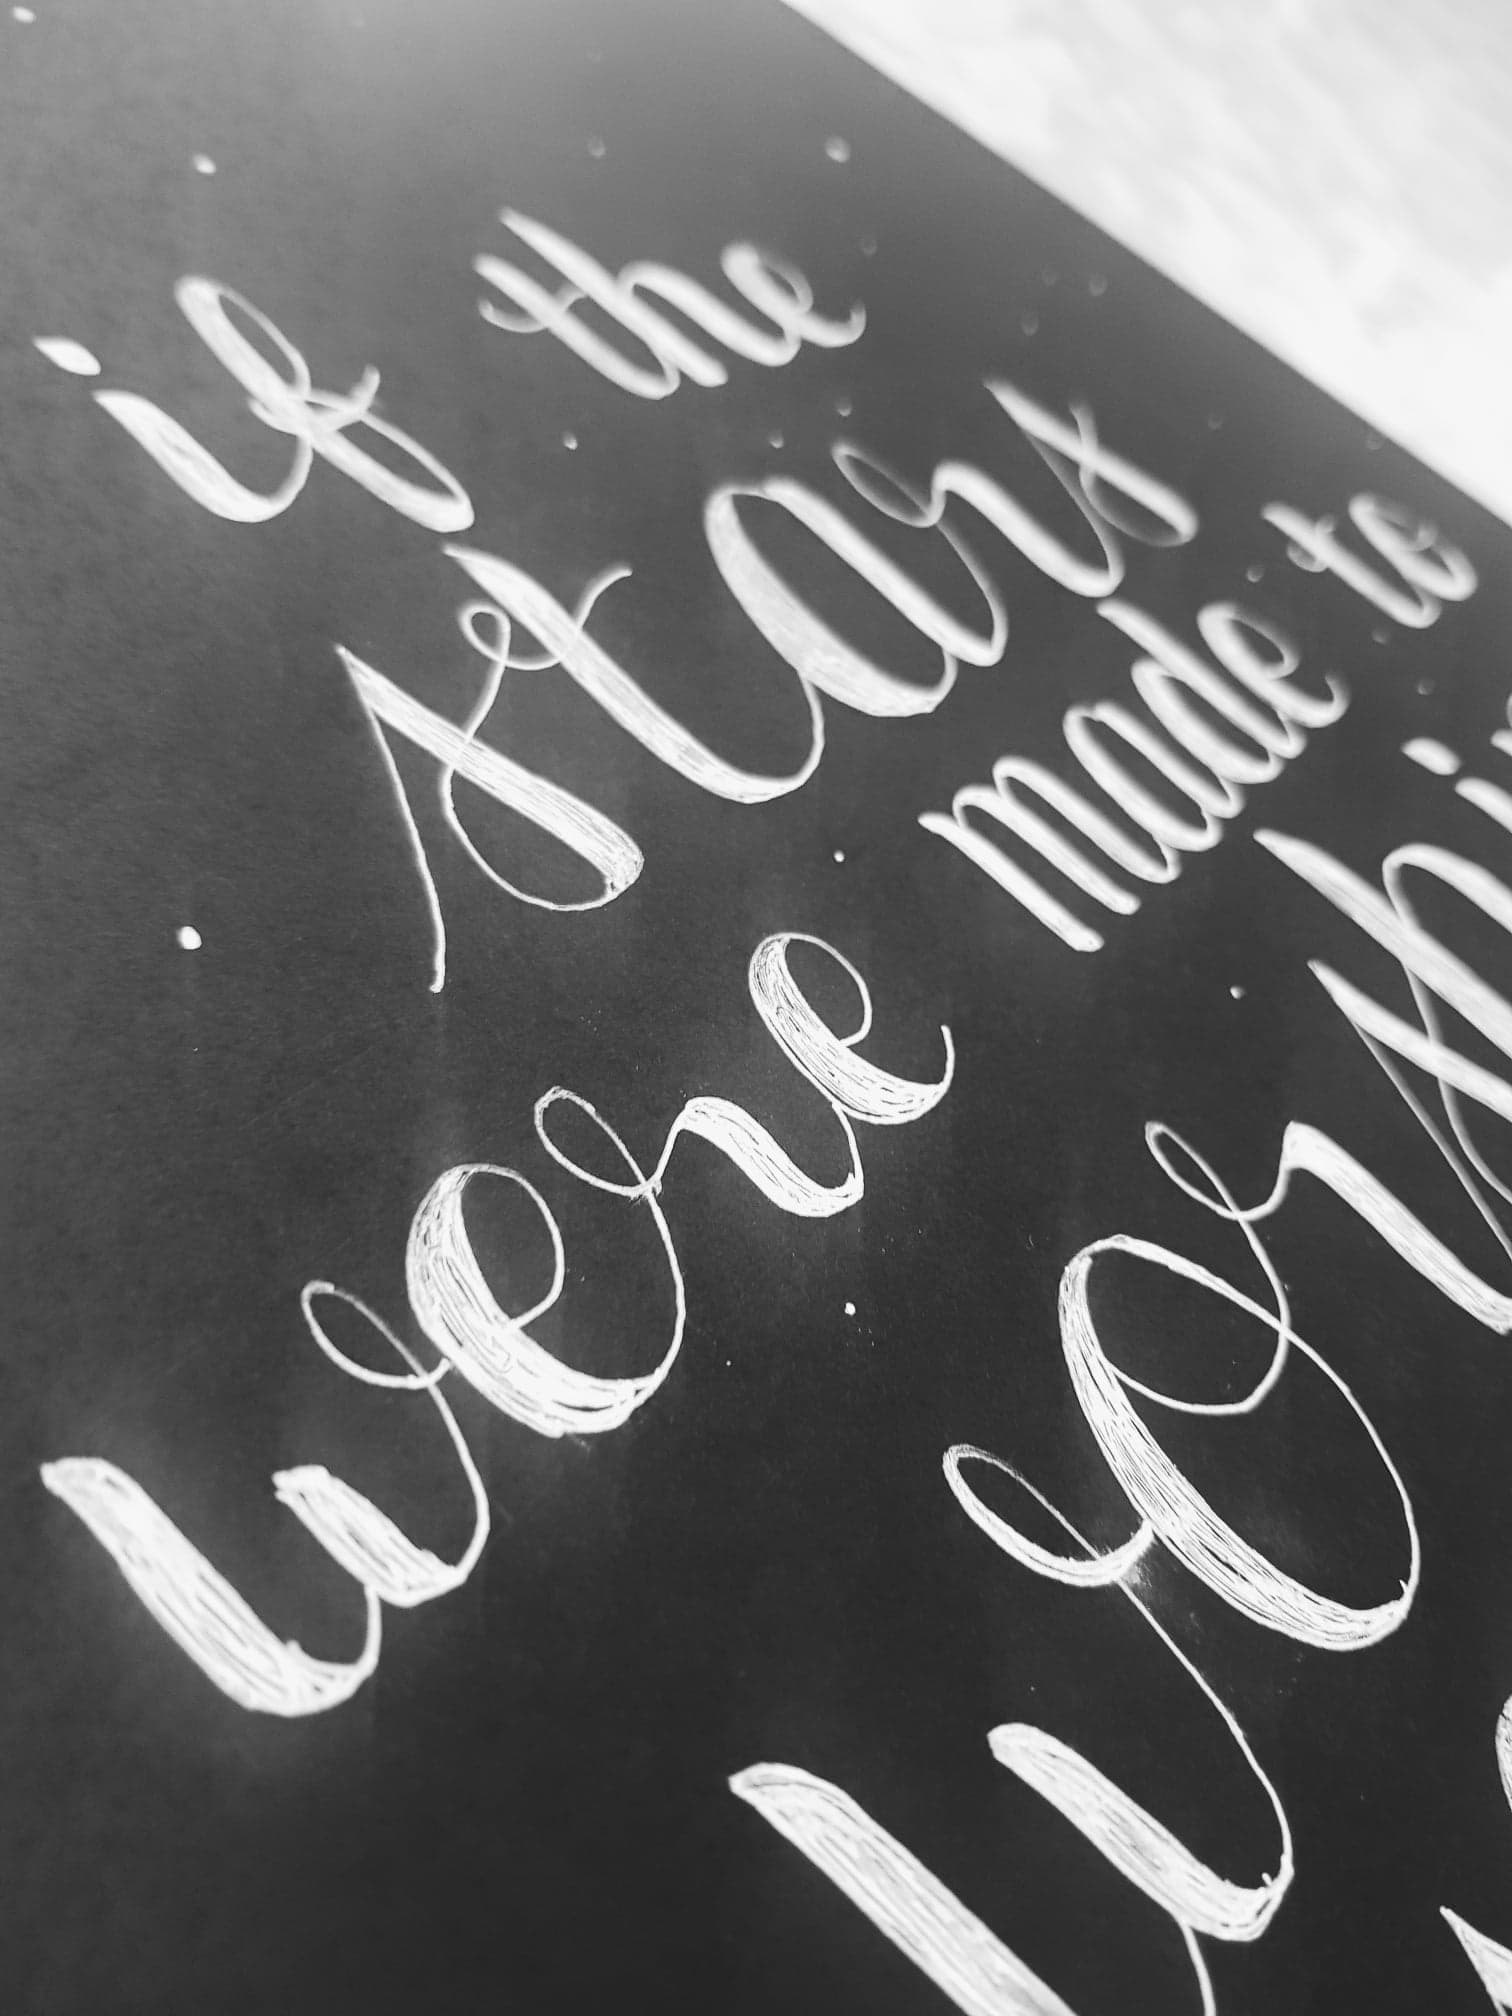 if the
stars
were made to
worshi